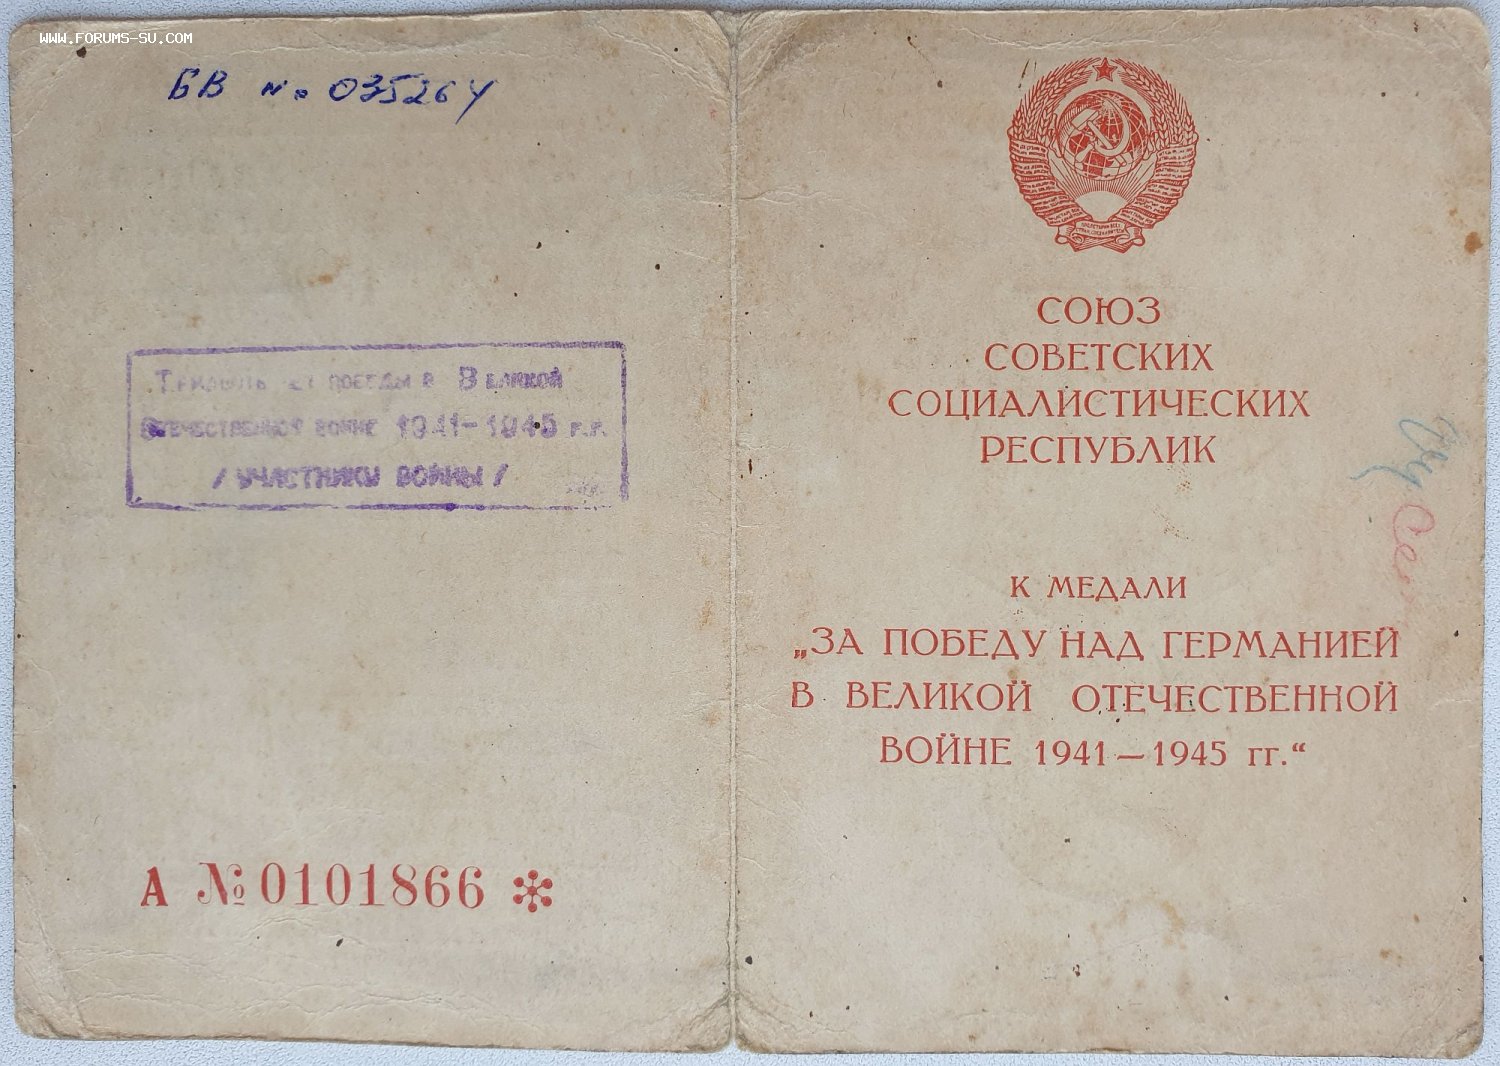 WWW.FORUMS-SU.COM
БВ № 035264
ЛЕТ ПОБЕДЫ В ВЕЛИКОЙ
ОТЕЧЕСТВЕННОЙ ВОЙНЕ 1941-1945 г.г.
/ УЧАСТНИКУ ВОЙНЫ /
А № 0101866
СОЮЗ
СОВЕТСКИХ
СОЦИАЛИСТИЧЕСКИХ
РЕСПУБЛИК
К МЕДАЛИ
„ЗА ПОБЕДУ НАД ГЕРМАНИЕЙ
В ВЕЛИКОЙ ОТЕЧЕСТВЕННОЙ
ВОЙНЕ 1941—1945 гг.“